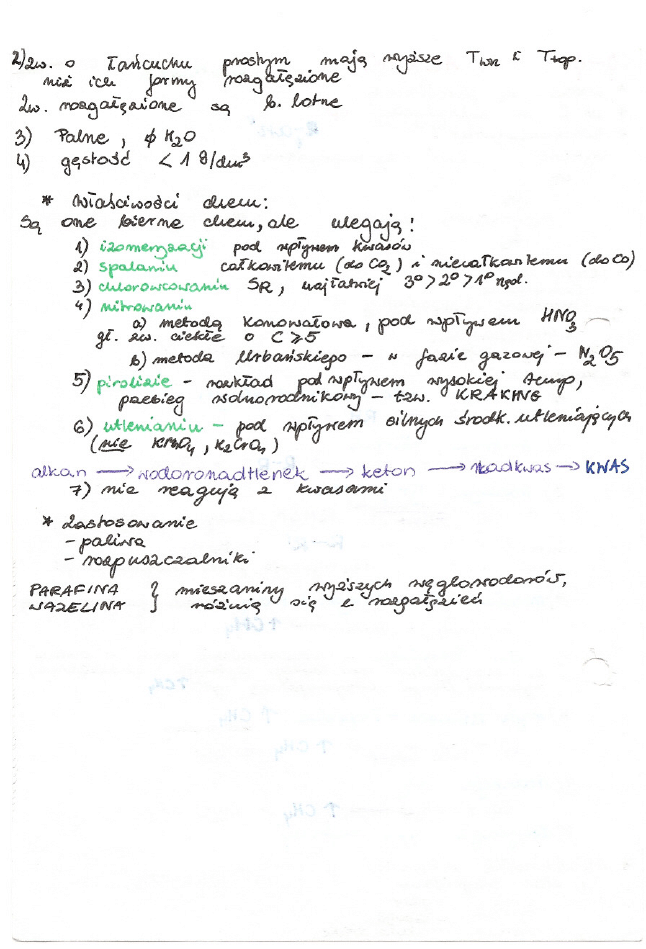 2) zw. o łańcuchu prostym mają wyższe Twrz i Ttop.
niż ich formy rozgałęzione
zw. rozgałęzione są b. lotne
3) Palne, ϕ H2O
4) gęstość < 1 g/dm3
* Właściwości chem:
Są one bierne chem, ale ulegają:
1) izomeryzacji pod wpływem kwasów
2) spalaniu całkowitemu (do CO2) i niecałkowitemu (do CO)
3) chlorowcowaniu SR, najłatwiej 3° > 2° > 1° rzęd.
4) nitrowaniu
a) metodą Konowałowa, pod wpływem HNO3
gł. zw. ciekłe o C ≥ 5
b) metoda Urbańskiego – w fazie gazowej – N2O5
5) pirolizie – rozkład pod wpływem wysokiej temp,
przebieg wolnorodnikowy – tzw. KRAKING
6) utlenianiu – pod wpływem silnych środk. utleniających
(nie KMnO4, K2CrO4)
alkan → wodoronadtlenek → keton → nadkwas → KWAS
7) nie reagują z kwasami
* Zastosowanie
– paliwa
– rozpuszczalniki
PARAFINA } mieszaniny wyższych węglowodorów,
WAZELINA } różnią się rozgałęzień